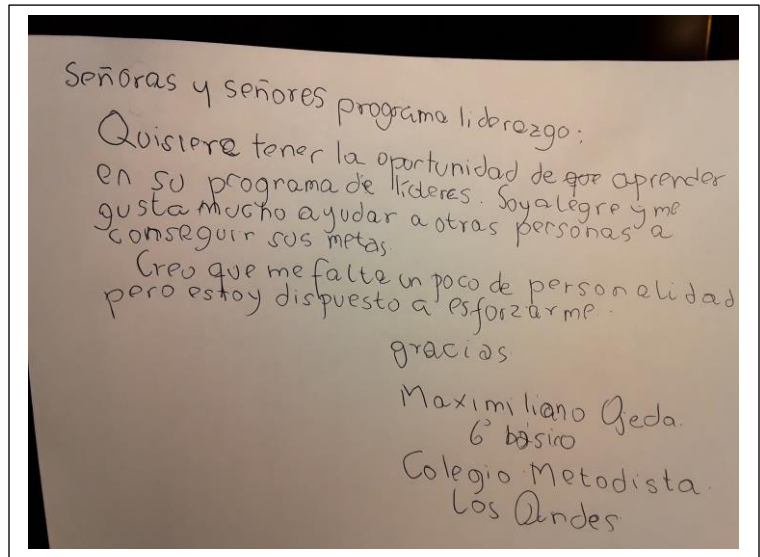 Señoras y señores programa liderazgo:
Quisiera tener la oportunidad de que aprender
en su programa de líderes. Soy alegre y me
gusta mucho ayudar a otras personas a
conseguir sus metas.
Creo que me falta un poco de personalidad
pero estoy dispuesto a esforzarme.
gracias
Maximiliano Ojeda.
6° básico
Colegio Metodista.
Los Andes